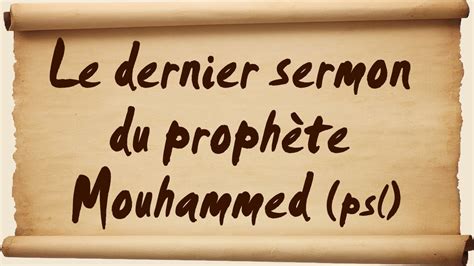 Le dernier sermon
du prophète
Mouhammed (psl)